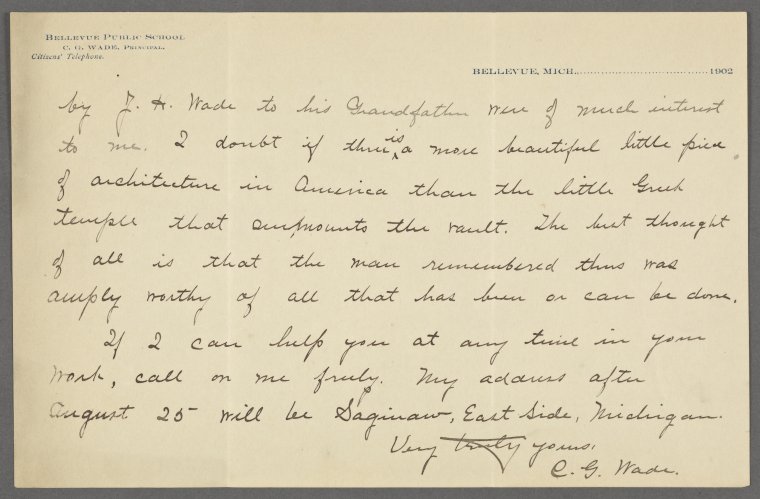 BELLEVUE PUBLIC SCHOOL
C. G. WADE, PRINCIPAL.
Citizens' Telephone.
BELLEVUE, MICH. 1902
by J. H. Wade to his Grandfather were of much interest
to me. I doubt if there is a more beautiful little piece
of architecture in America than the little Greek
temple that surmounts the vault. The best thought
of all is that the man remembered thus was
amply worthy of all that has been or can be done.
If I can help you at any time in your
work, call on me freely. My address after
August 25 will be Saginaw, East Side, Michigan.
Very truly yours,
C. G. Wade.